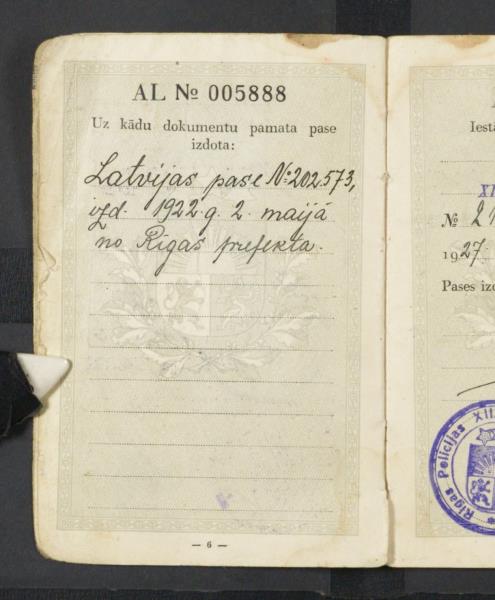 AL № 005888
Uz kādu dokumentu pamata pase
izdota:
Latvijas pase №202.573,
izd. 1922.g. 2. maijā
no Rīgas prefekta.
— 6 —
Iestā
XI
№ 21
1927
Pases izd
Rīgas Policijas XII